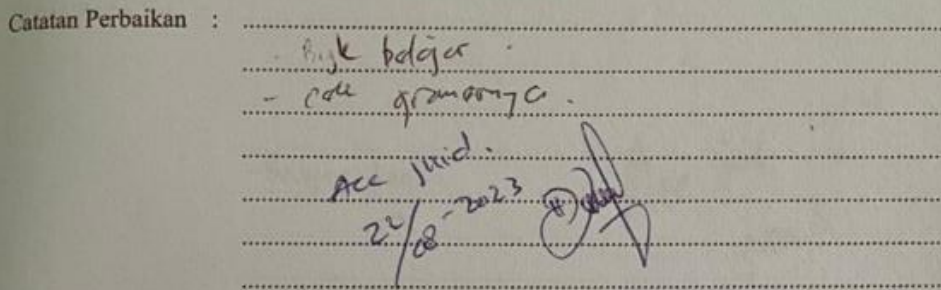 Catatan Perbaikan :
- Byk belajar.
- cek gramarnya.
ACC jilid.
22/08-2023